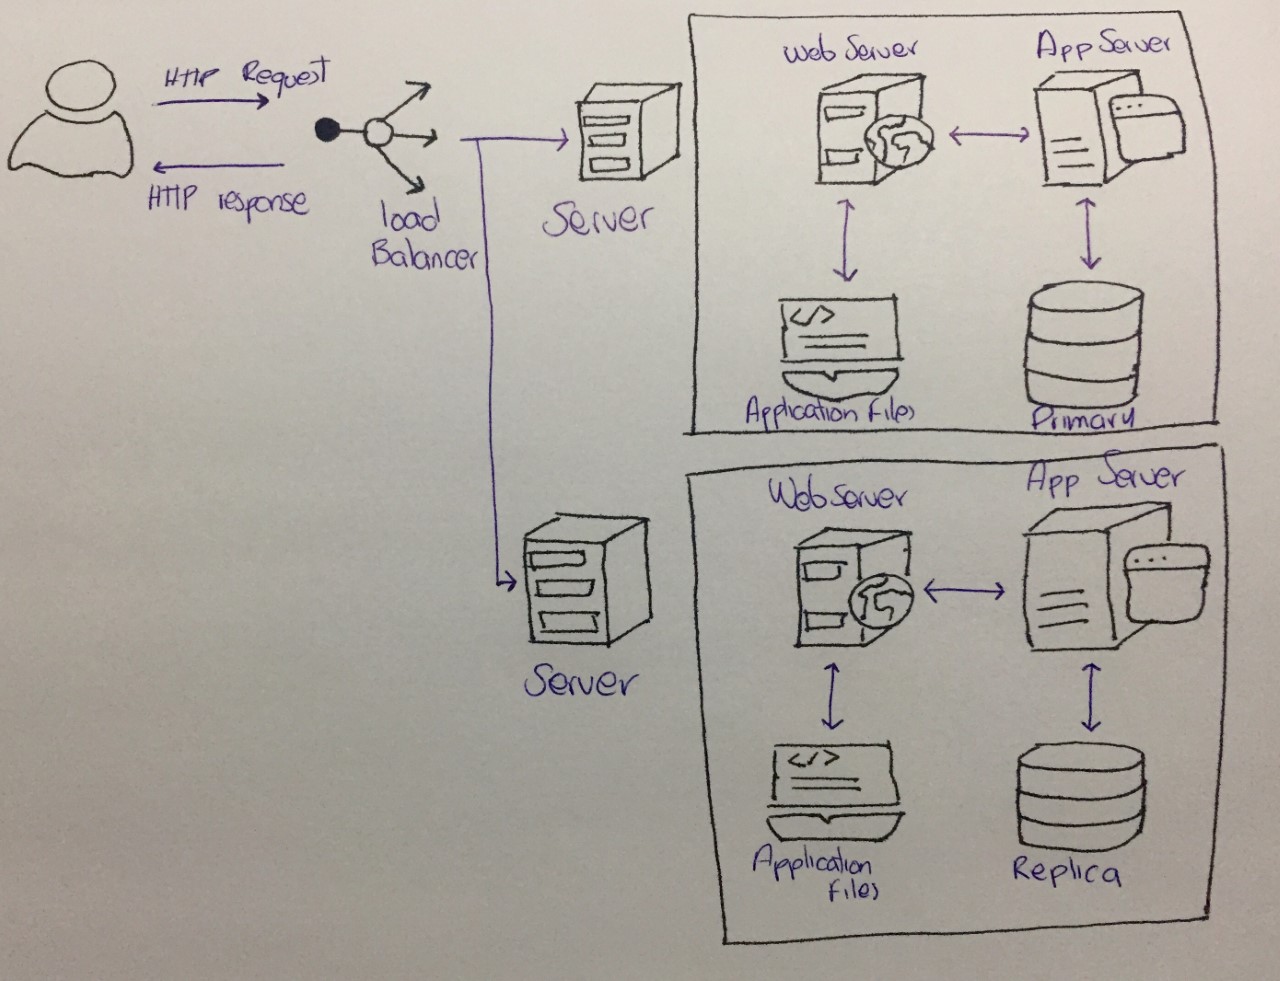 HTTP Request
HTTP response
load
Balancer
Server
Web Server
App Server
</>
Application Files
Primary
Server
Web Server
App Server
</>
Application
Files
Replica